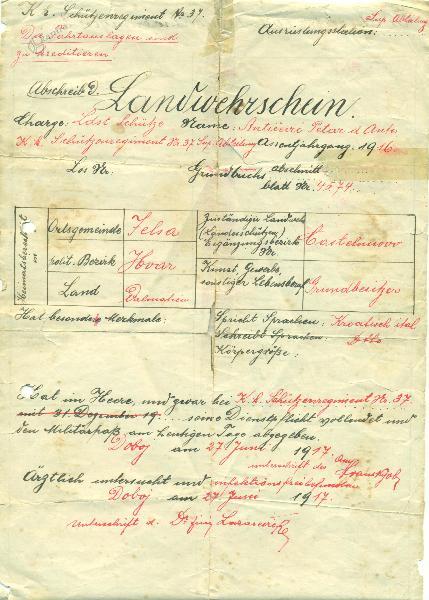 K. k. Schützenregiment Nr. 37.
Sup. Abteilung
Ausrüstungsstation:
Die Fahrtauslagen sind
zu kreditieren
Abschrift d.
Landwehrschein.
Charge: Ldst. Schütze Name: Petar d. Ante
K. k. Schützenregiment Nr. 37 Sup. Abteilung Assentjahrgang: 1916
Los Nr. Grundbuchs abschnitt
blatt Nr. 4574.
Heimatsberechtigt in
Ortsgemeinde Jelsa
polit. Bezirk Hvar
Land Dalmatien
Zuständiger Landwehr
(Landesschützen)
Ergänzungsbezirk Nr. Castelnuovo
Kunst, Gewerbe,
sonstiger Lebensberuf Grundbesitzer
Hat besondere Merkmale:
Spricht Sprachen: Kroatisch ital
Schreibt Sprachen: dtto
Körpergröße:
Hat im Heere, und zwar bei K. k. Schützenregiment Nr. 37
mit 31. Dezember 19.. seine Dienstpflicht vollendet und
den Militärpaß am heutigen Tage abgegeben.
Doboj am 27 Juni 1917.
Unterschrift des
Ärztlich untersucht und infektionsfrei befunden
Doboj am 27 Juni 1917.
Unterschrift d. Dr.